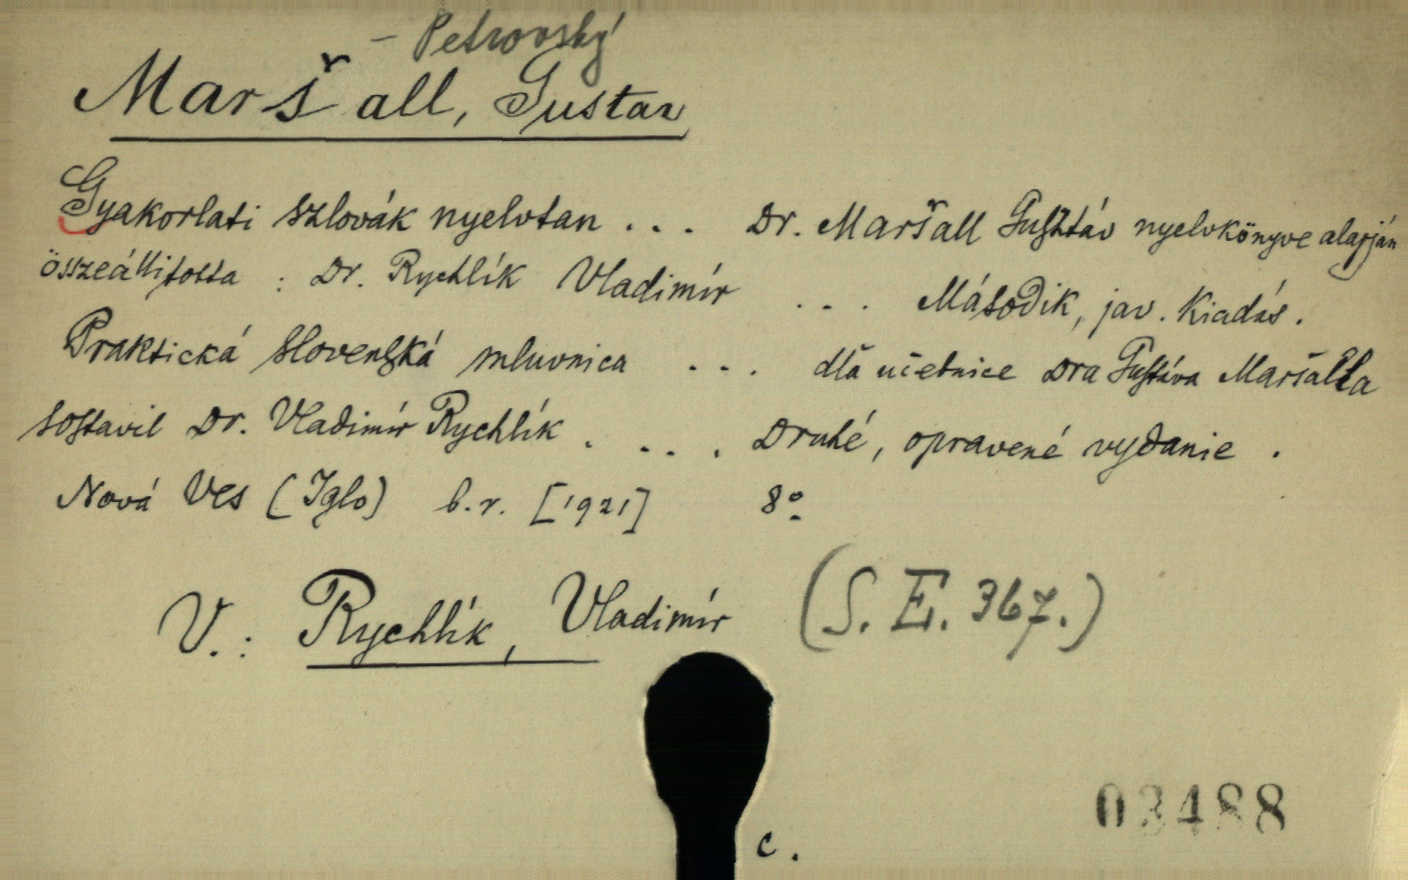 - Petrovský
Maršall, Gustav
Gyakorlati szlovák nyelvtan . . . Dr. Maršall Gusztáv nyelvkönyve alapján
összeállitotta : Dr. Rychlík Vladimír . . . Második, jav. kiadás.
Praktická slovenská mluvnica . . . dľa učebnice Dra Gustáva Maršalla
sostavil Dr. Vladimír Rychlík . . . . Druhé, opravené vydanie .
Nová Ves (Igló) b. r. [1921] 8°
V. : Rychlík, Vladimír (S. E. 367.)
03488
c .